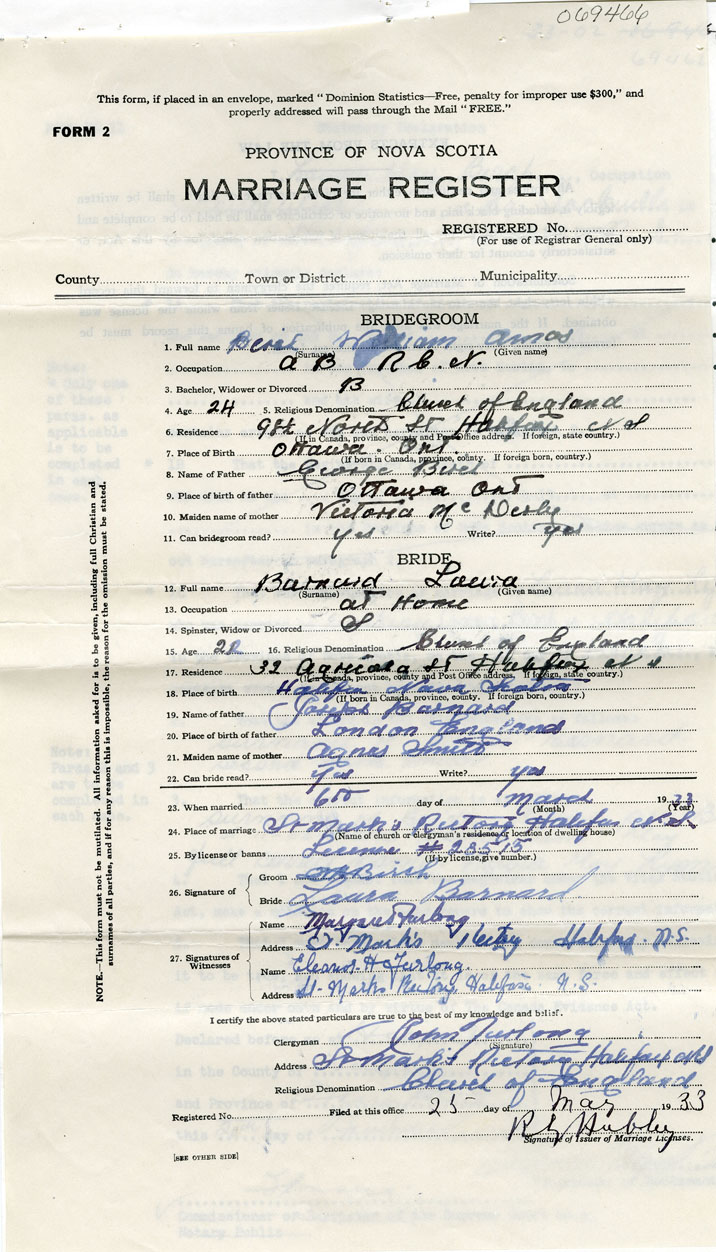 069466
This form, if placed in an envelope, marked "Dominion Statistics—Free, penalty for improper use $300," and
properly addressed will pass through the Mail "FREE."
FORM 2
PROVINCE OF NOVA SCOTIA
MARRIAGE REGISTER
REGISTERED No.
(For use of Registrar General only)
County Town or District Municipality
BRIDEGROOM
1. Full name William Amos
(Surname) (Given name)
2. Occupation A B R. C. N.
3. Bachelor, Widower or Divorced B
4. Age 24 5. Religious Denomination Church of England
6. Residence North St Halifax N S
(If in Canada, province, county and Post Office address. If foreign, state country.)
7. Place of Birth Ottawa Ont.
(If born in Canada, province, county. If foreign born, country.)
8. Name of Father George Birch
9. Place of birth of father Ottawa Ont
10. Maiden name of mother Victoria Mc
11. Can bridegroom read? yes Write? yes
BRIDE
12. Full name Barnard Laura
(Surname) (Given name)
13. Occupation at Home
14. Spinster, Widow or Divorced S
15. Age 16. Religious Denomination Church of England
17. Residence 32 Agricola St Halifax N S
(If in Canada, province, county and Post Office address. If foreign, state country.)
18. Place of birth Halifax Nova Scotia
(If born in Canada, province, county. If foreign born, country.)
19. Name of father Joseph Barnard
20. Place of birth of father London England
21. Maiden name of mother Agnes Smith
22. Can bride read? yes Write? yes
23. When married day of March 1933
(Month) (Year)
24. Place of marriage St Mark's Rectory Halifax N.S.
(Name of church or clergyman's residence or location of dwelling house)
25. By license or banns License # 28575
(If by license, give number.)
26. Signature of
Groom Birch
Bride Laura Barnard
27. Signatures of Witnesses
Name Margaret Furlong
Address St Mark's Rectory Halifax. N.S.
Name Eleanor H Furlong.
Address St. Mark's Rectory Halifax. N.S.
I certify the above stated particulars are true to the best of my knowledge and belief.
Clergyman John Furlong
(Signature)
Address St Mark's Rectory Halifax NS
Religious Denomination Church of England
Registered No. Filed at this office 25 day of May 1933
Signature of Issuer of Marriage Licenses.
[SEE OTHER SIDE]
NOTE.—This form must not be mutilated. All information asked for is to be given, including full Christian and
surnames of all parties, and if for any reason this is impossible, the reason for the omission must be stated.